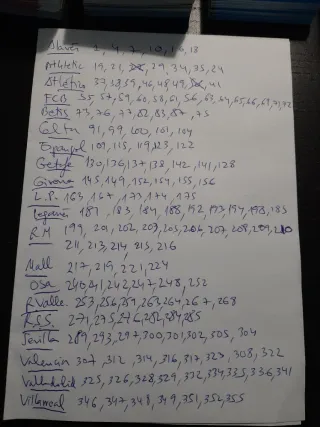 Alavés 2, 4, 7, 10, 16, 18
Athletic 19, 21, 29, 34, 35, 24
Atlético 37, 38, 39, 46, 48, 49, 41
FCB 55, 57, 59, 60, 58, 61, 56, 63, 64, 65, 66, 69, 71, 72
Betis 73, 76, 77, 82, 83, 87, 75
Celta 91, 99, 100, 101, 104
Espanyol 109, 115, 119, 123, 122
Getafe 130, 136, 137, 138, 142, 141, 128
Girona 145, 149, 152, 154, 155, 156
L.P. 163, 167, 173, 174, 175
Leganés 181, 183, 184, 188, 192, 193, 194, 198, 185
R.M 199, 201, 202, 203, 205, 206, 207, 208, 209, 210
211, 213, 214, 215, 216
Mall 217, 219, 221, 224
OSA 240, 241, 242, 247, 248, 252
R.Valle. 253, 256, 259, 263, 264, 267, 268
R.S.S. 271, 275, 276, 282, 284, 285
Sevilla 289, 293, 297, 300, 301, 302, 305, 304
Valencia 307, 312, 314, 316, 317, 323, 308, 322
Valladolid 325, 326, 328, 329, 332, 334, 335, 336, 341
Villarreal 346, 347, 348, 349, 351, 352, 355